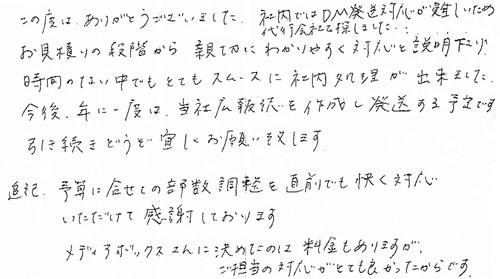 この度は、ありがとうございました。社内ではDM発送対応が難しいため
代行会社を探しました…
お見積りの段階から親切にわかりやすく対応と説明下さり、
時間のない中でもとてもスムーズに社内処理が出来ました。
今後、年に一度は、当社広報紙を作成し発送する予定です。
引き続きどうぞ宜しくお願い致します。
追記、予算に合せての部数調整を直前でも快く対応
いただけて感謝しております
メディアボックスさんに決めたのは料金もありますが、
ご担当の対応がとても良かったからです。